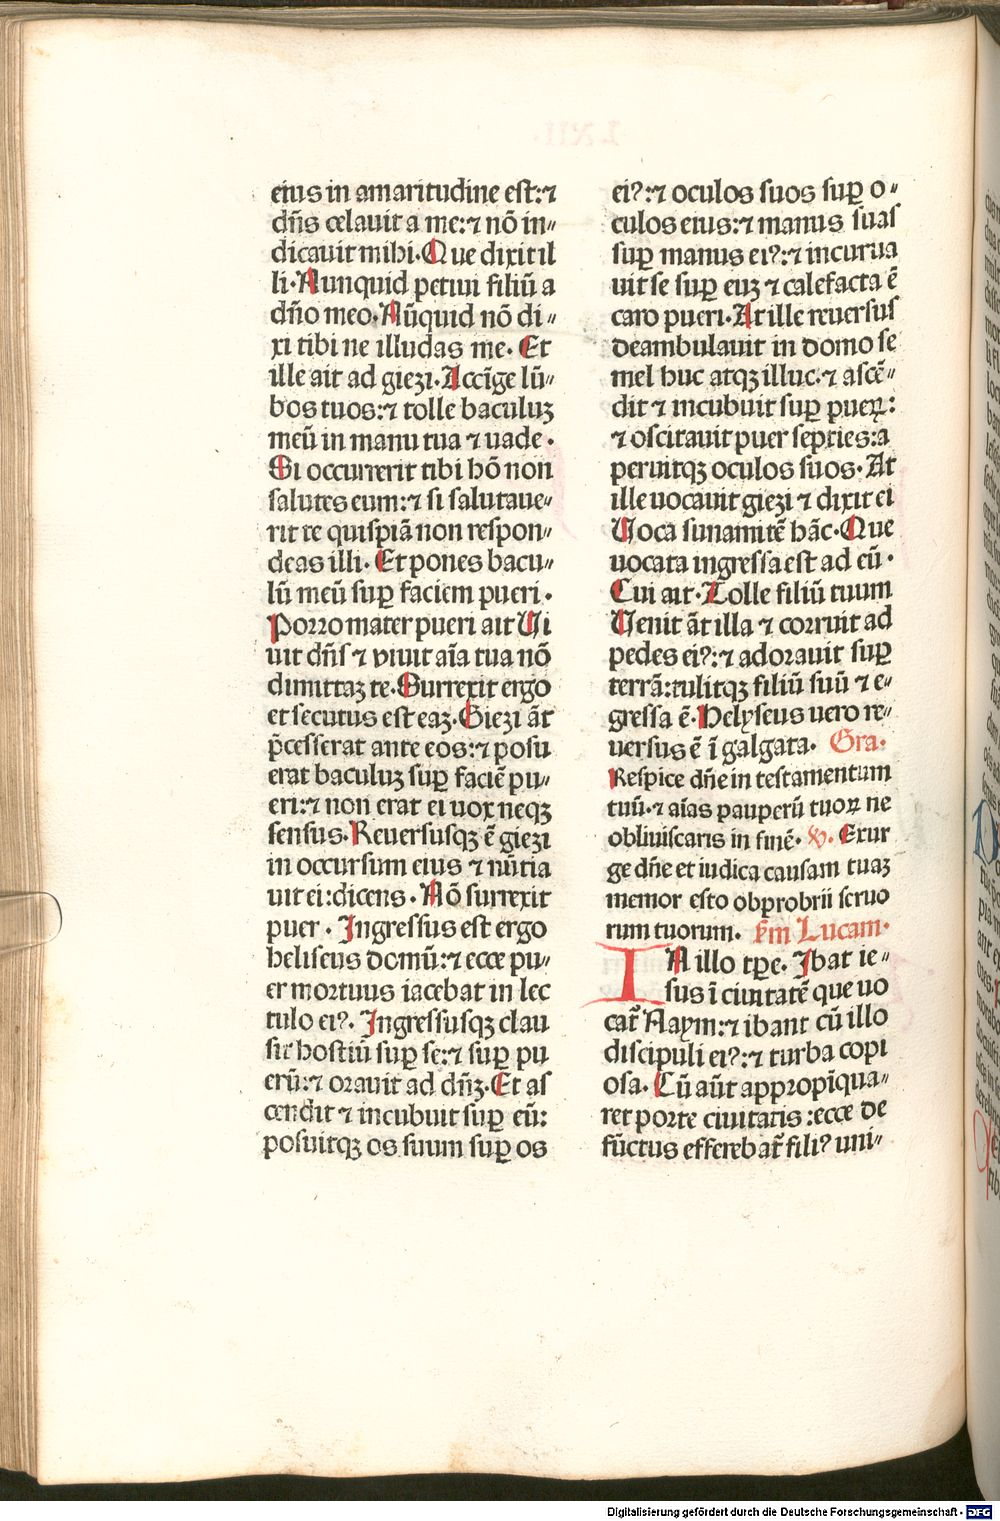 eius in amaritudine est:⁊
dn̄s celauit a me:⁊ nō in⸗
dicauit mihi. Que dixit il
li. Nunquid petiui filiū a
dn̄o meo. Nūquid nō di⸗
xi tibi ne illudas me. Et
ille ait ad giezi. Accīge lū⸗
bos tuos:⁊ tolle baculuꝫ
meū in manu tua ⁊ uade.
Si occurrerit tibi hō non
salutes eum:⁊ si salutaue⸗
rit te quispiā non respon⸗
deas illi. Et pones bacu⸗
lū meū suꝑ faciem pueri.
Porro mater pueri ait Ui
uit dn̄s ⁊ viuit aīa tua nō
dimittaꝫ te. Surrexit ergo
et secutus est eaꝫ. Giezi āt
p̄cesserat ante eos:⁊ posu
erat baculuꝫ suꝑ faciē pu⸗
eri:⁊ non erat ei uox neqꝫ
sensus. Reuersusqꝫ ē giezi
in occursum eius ⁊ nūtia
uit ei:dicens. Nō surrexit
puer. Ingressus est ergo
heliseus domū:⁊ ecce pu⸗
er mortuus iacebat in lec
tulo eiꝰ. Ingressusqꝫ clau
sit hostiū suꝑ se:⁊ suꝑ pu
erū:⁊ orauit ad dn̄ꝫ. Et as
cendit ⁊ incubuit suꝑ eū:
posuitqꝫ os suum suꝑ os
eiꝰ:⁊ oculos suos suꝑ o⸗
culos eius:⁊ manus suas
suꝑ manus eiꝰ:⁊ incurua
uit se suꝑ euꝫ ⁊ calefacta ē
caro pueri. At ille reuersus
deambulauit in domo se
mel huc atqꝫ illuc.⁊ ascē⸗
dit ⁊ incubuit suꝑ pueꝝ:
⁊ oscitauit puer septies:a
peruitqꝫ oculos suos. At
ille uocauit giezi ⁊ dixit ei
Uoca sunamitē hāc. Que
uocata ingressa est ad eū.
Cui ait. Tolle filiū tuum
Uenit āt illa ⁊ corruit ad
pedes eiꝰ:⁊ adorauit suꝑ
terrā:tulitqꝫ filiū suū ⁊ e⸗
gressa ē. Helyseus uero re⸗
uersus ē ī galgata. Gra.
Respice dn̄e in testamentum
tuū.⁊ aīas pauperū tuoꝝ ne
obliuiscaris in finē. ℣. Exur
ge dn̄e et iudica causam tuaꝫ
memor esto obprobrii seruo
rum tuorum. ẜm Lucam.
IN illo tꝑe. Ibat ie⸗
sus ī ciuitatē que uo
cat̄ Naym:⁊ ibant cū illo
discipuli eiꝰ:⁊ turba copi
osa. Cū aūt appropīqua⸗
ret porte ciuitatis:ecce de
fūctus efferebat̄ filiꝰ uni⸗
Digitalisierung gefördert durch die Deutsche Forschungsgemeinschaft - DFG